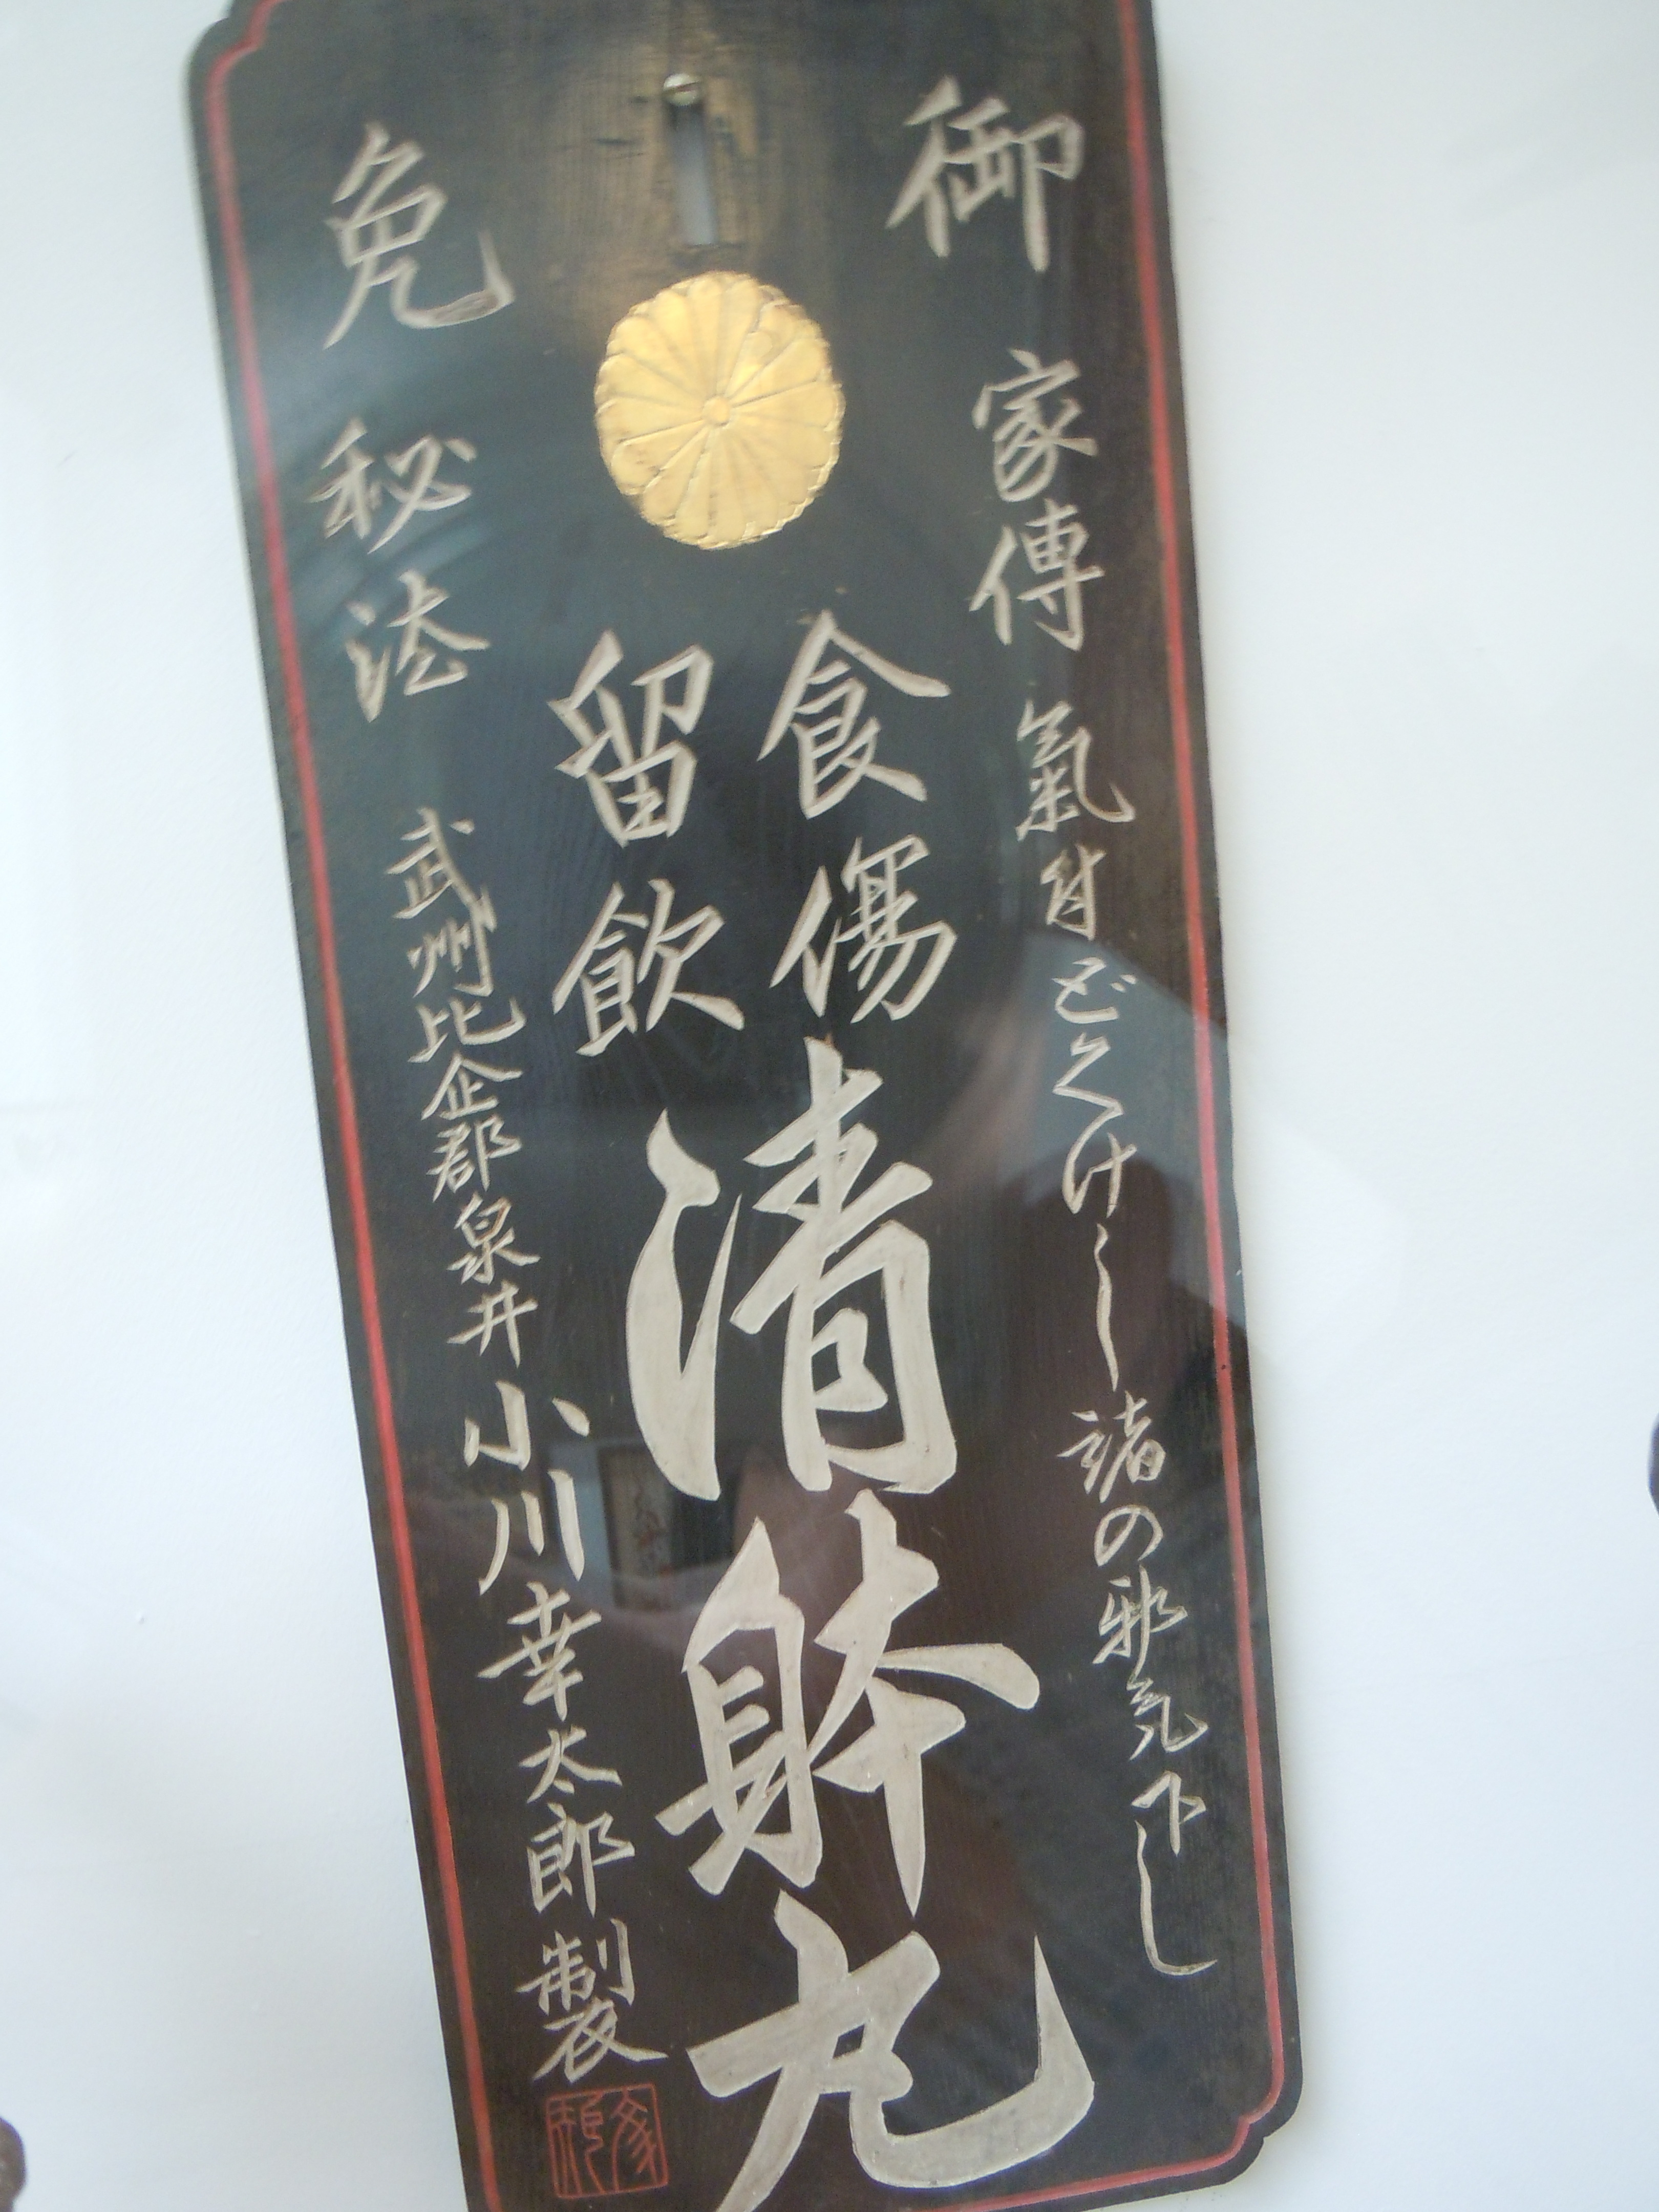 御免
家傳
秘法
氣付どくけし諸の邪気下し
食傷
留飲
清躰丸
武州比企郡泉井小川幸太郎製